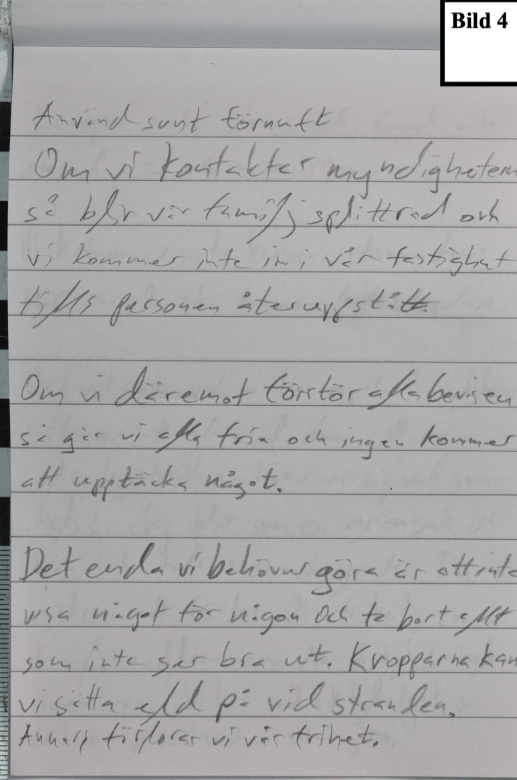 Bild 4
Använd sunt förnuft
Om vi kontaktar myndigheten
så blir vår familj splittrad och
vi kommer inte in i vår fastighet
tills personen återuppstått.
Om vi däremot förstör alla bevisen
så går vi alla fria och ingen kommer
att upptäcka något.
Det enda vi behöver göra är att inte
visa något för någon och ta bort allt
som inte ser bra ut. Kropparna kan
vi sätta eld på vid stranden.
Annars förlorar vi vår frihet.